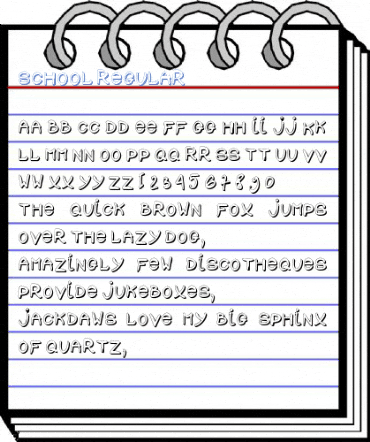 SCHOOL ReGULAR
AA BB CC DD ee FF GG HH iI jJ KK
LL MM NN OO PP QQ RR SS TT UU VV
WW XX YY ZZ 1 2 3 4 5 6 7 8 9 0
THe QUiCK BROWN FOX jUMPS
OVeR THe LAZY DOG,
AMAZiNGLY FeW DiSCOTHeQUeS
PROViDe jUKeBOXeS,
jACKDAWS LOVe MY BiG SPHiNX
OF QUARTZ,